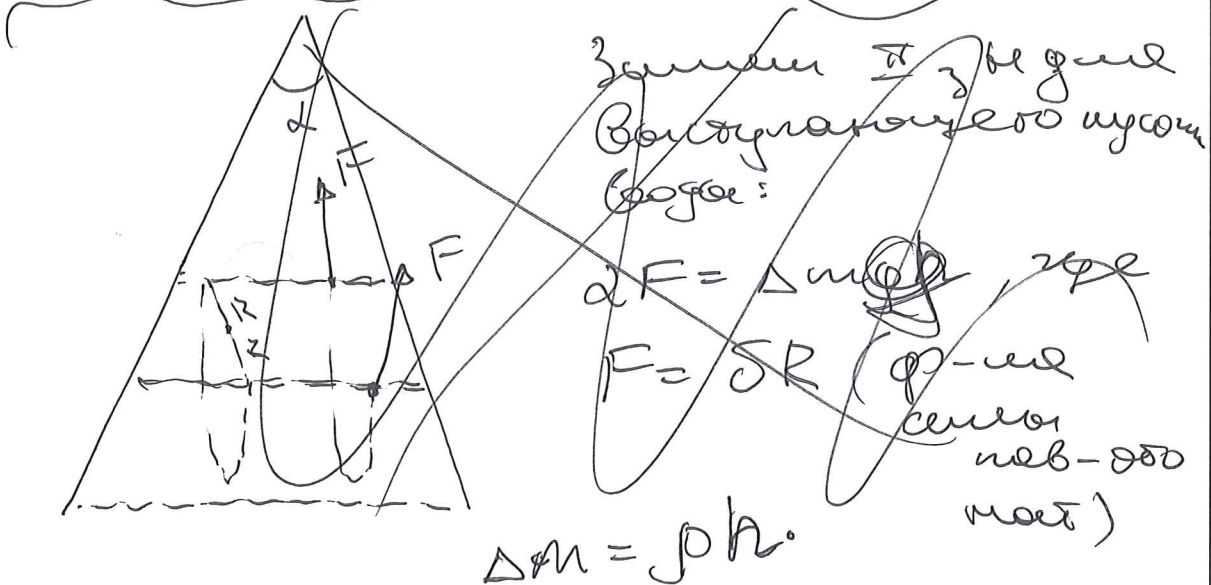 Запишем II з-н для
выступающего кусочка
воды:
α
F
F
R
2
2F = Δmg
где
F = δR (ф-ла
силы
пов-ого
нат)
Δm = ρh.